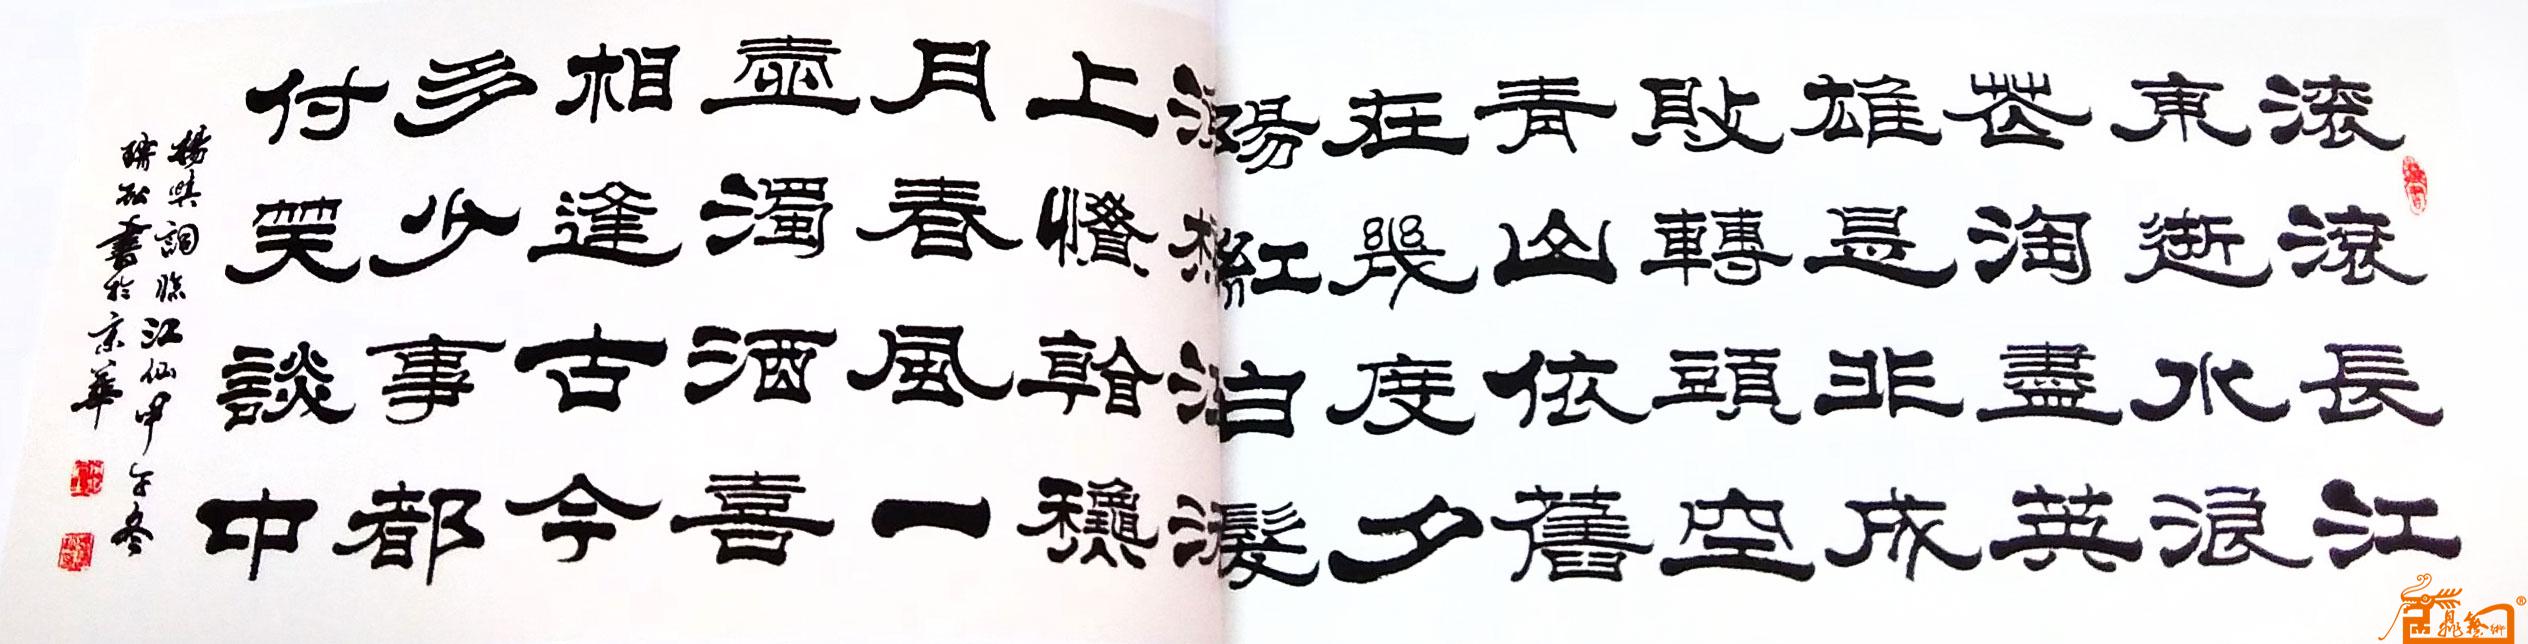 滚滚長江
東逝水浪
花淘盡英
雄是非成
敗轉頭空
青山依舊
在幾度夕
陽紅白髮
漁樵江渚
上慣看龝
月春風一
壺濁酒喜
相逢古今
多少事都
付笑談中
楊詞臨江仙甲午冬
書於京華